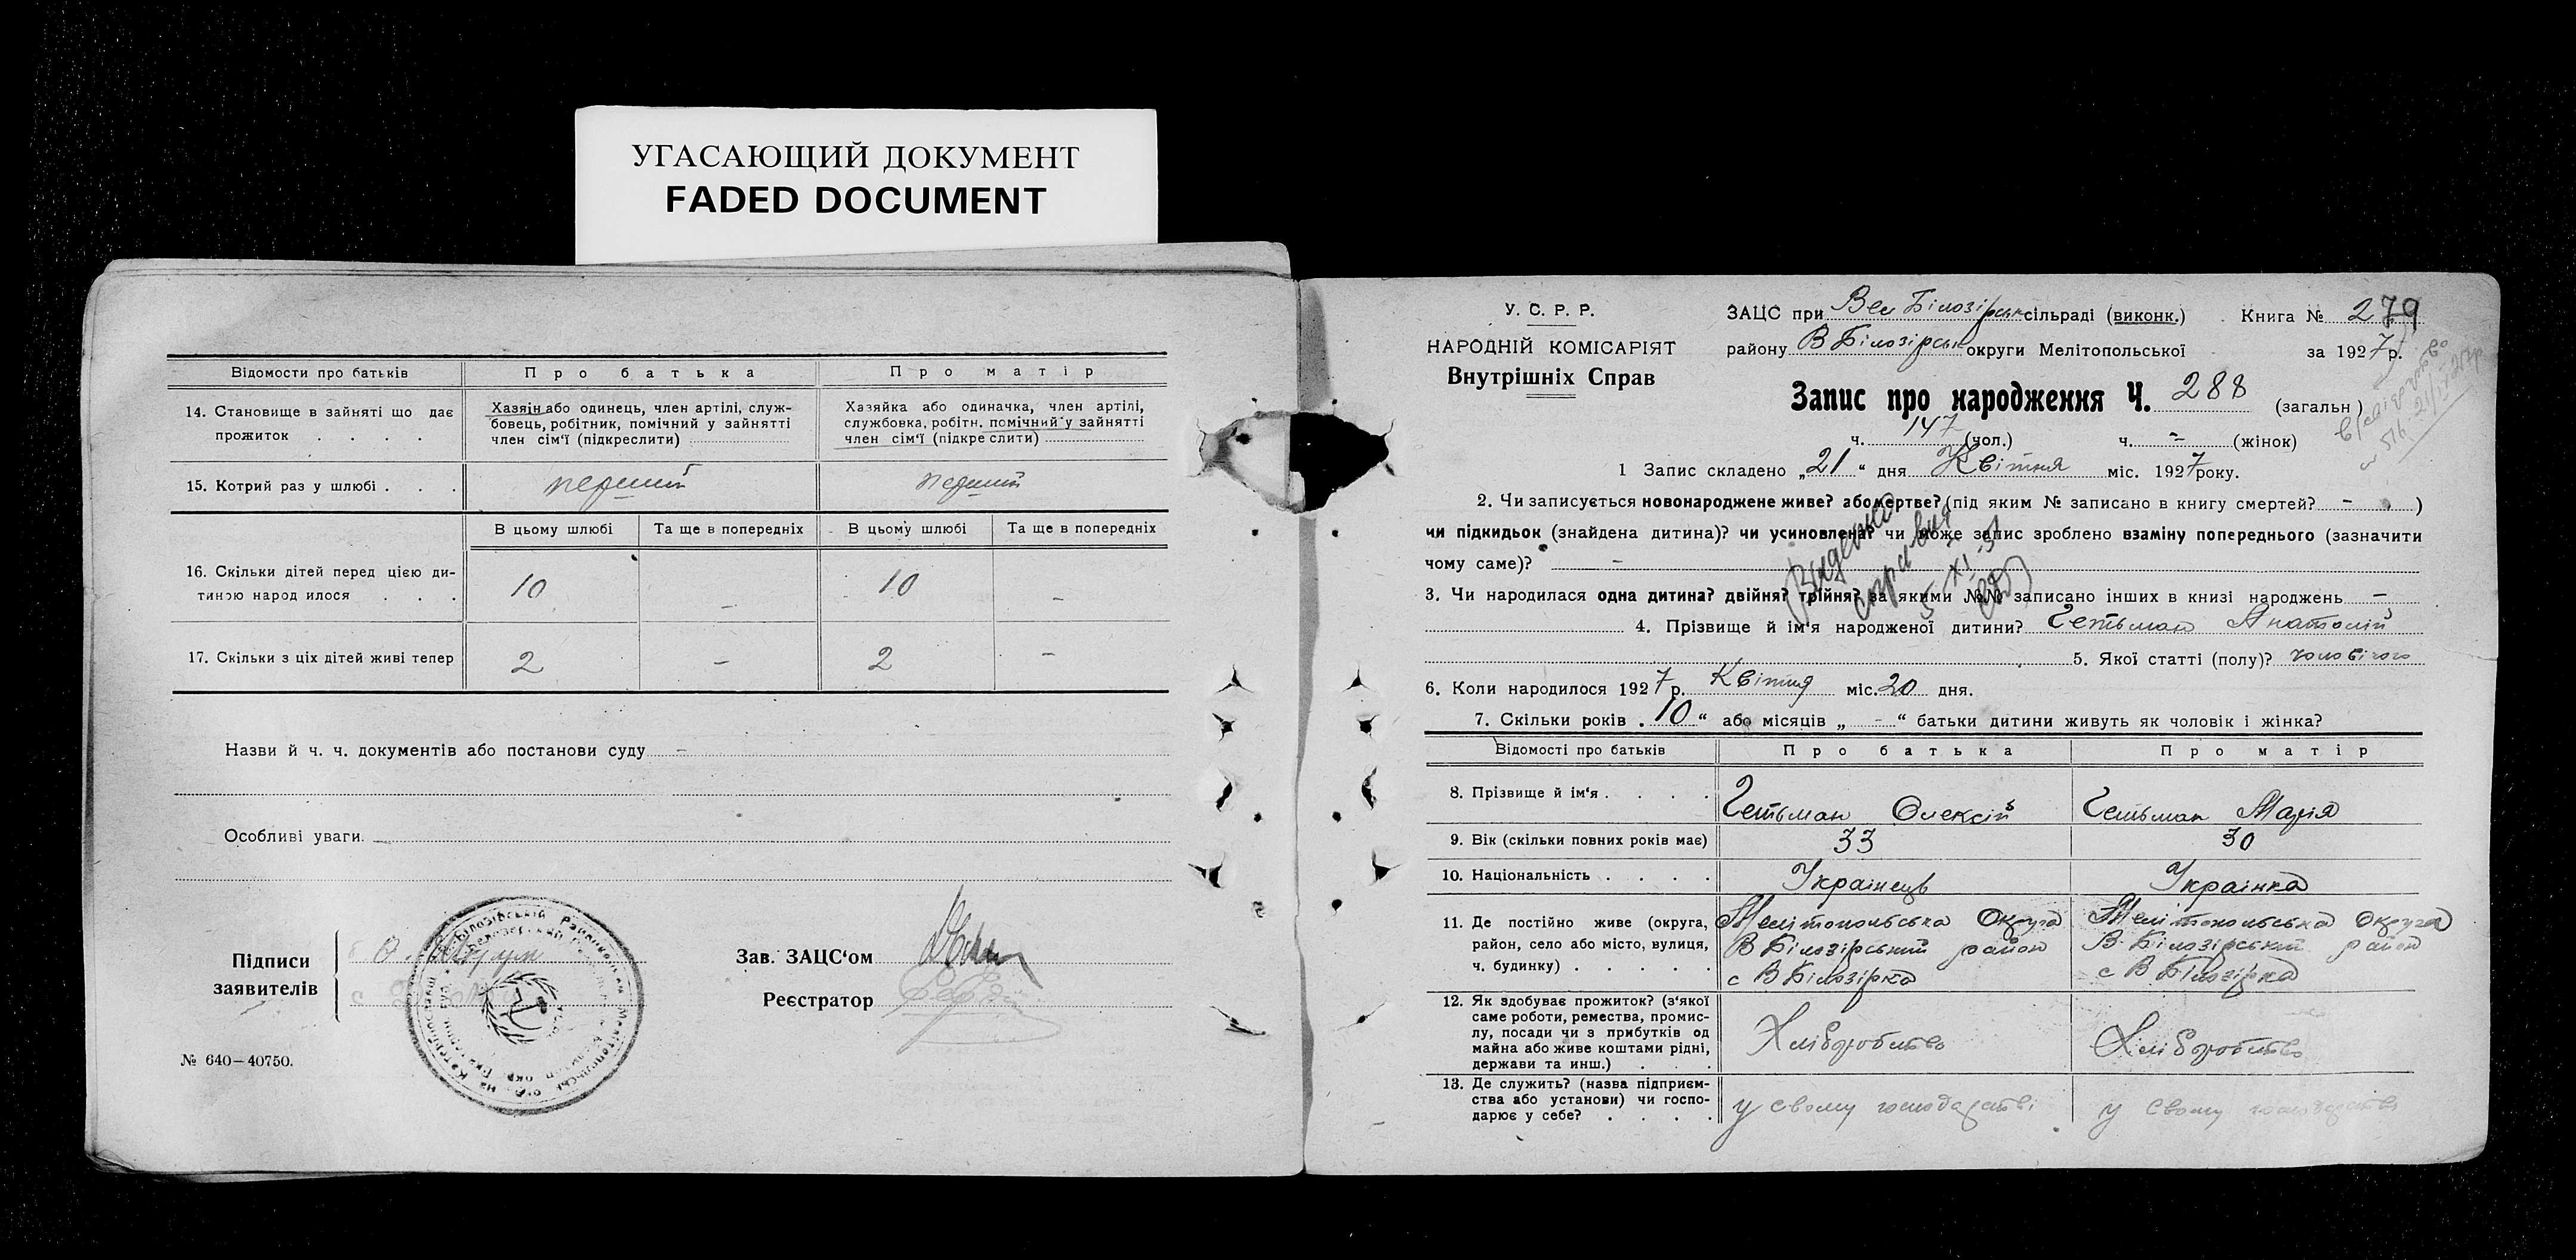 УГАСАЮЩИЙ ДОКУМЕНТ
FADED DOCUMENT
Відомости про батьків
Про батька
Про матір
14. Становище в зайняті що дає прожиток . . . .
Хазяін або одинець, член артілі, служ-
бовець, робітник, помічний у зайнятті
член сім'ї (підкреслити)
Хазяйка або одиначка, член артілі,
службовка, робітн. помічний у зайнятті
член сім'ї (підкре слити)
15. Котрий раз у шлюбі . . .
перший
перший
В цьому шлюбі
Та ще в попередніх
В цьому шлюбі
Та ще в попередніх
16. Скільки дітей перед цією ди-
тиною народ илося . . .
10 – 10 –
17. Скільки з ціх дітей живі тепер
2 – 2 –
Назви й ч. ч. документів або постанови суду –
Особливі уваги.
Підписи
заявителів
Зав. ЗАЦС'ом
Реєстратор
№ 640—40750.
У. С. Р. Р.
НАРОДНІЙ КОМІСАРІЯТ
Внутрішніх Справ
ЗАЦС при Вел Білозірськ сільраді (виконк.) Книга № 279
району В Білозірськ округи Мелітопольської за 1927 р.
Запис про народження Ч. 288 (загальн)
ч. 147 (чол.) ч. – (жінок)
1 Запис складено „21“ дня Квітня міс. 1927 року.
2. Чи записується новонароджене живе? або мертве? (під яким № записано в книгу смертей? – )
чи підкидьок (знайдена дитина)? чи усиновлена? чи може запис зроблено взаміну попереднього (зазначити
чому саме)? –
3. Чи народилася одна дитина? двійня? трійня? за якими №№ записано інших в книзі народжень –
4. Прізвище й ім'я народженої дитини? Гетьман Анатолій
5. Якої статті (полу)? чоловічого
6. Коли народилося 1927 р. Квітня міс. 20 дня.
7. Скільки років „10“ або місяців „ – “ батьки дитини живуть як чоловік і жінка?
Відомості про батьків
Про батька
Про матір
8. Прізвище й ім'я . . . .
Гетьман Олексій
Гетьман Марія
9. Вік (скільки повних років має)
33
30
10. Національність . . . .
Українець
Українка
11. Де постійно живе (округа,
район, село або місто, вулиця,
ч. будинку) . . . . .
Мелітопольська Округа
В Білозірський район
с В Білозірка
Мелітопольська Округа
В Білозірський район
с В Білозірка
12. Як здобуває прожиток? (з'якої
саме роботи, ремества, промис-
лу, посади чи з прибутків од
майна або живе коштами рідні,
держави та инш.) . . .
Хліборобство
Хліборобство
13. Де служить? (назва підприєм-
ства або установи) чи госпо-
дарює у себе? . . . .
у своему господарстві
у своему господарстві